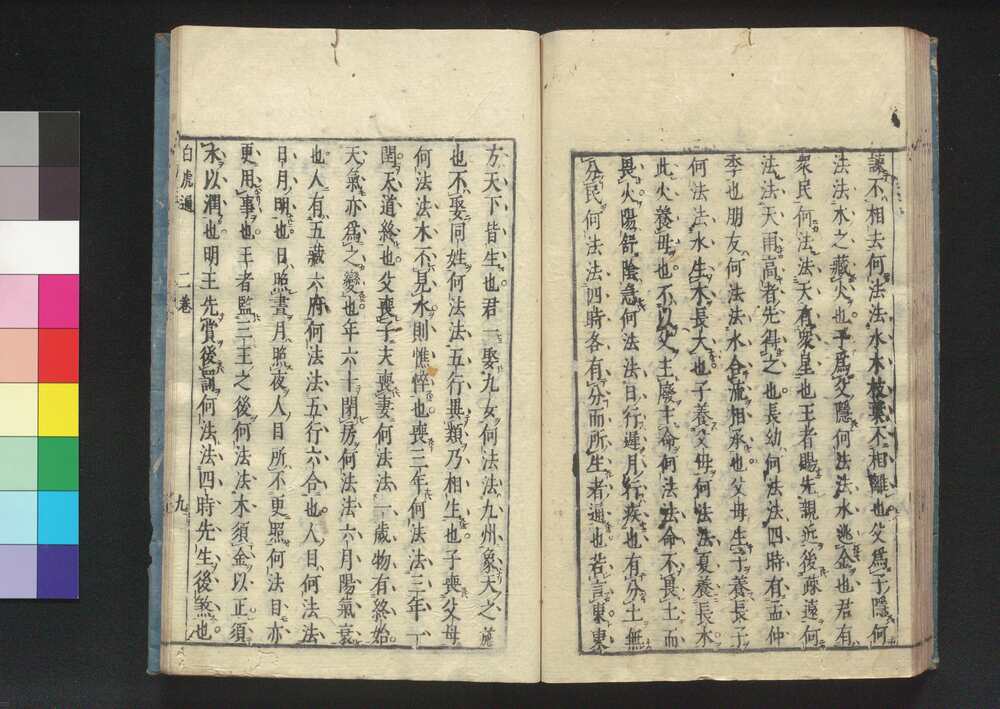 諫不相去何法法水木枝葉不相離也父爲子隱何
法法水之藏火也子爲父隱何法法水逃金也君有
衆民何法法天有衆星也王者賜先親近後疎遠何
法法天雨高者先得之也長幼何法法四時有孟仲
季也朋友何法法水合流相承也父母生子養長子
何法法水生木長大也子養父母何法法夏養長木
此火養母也不以父主廢主命何法法命不畏土而
畏火陽舒陰急何法法日行遲月行疾也有分土無
分民何法法四時各有分而所生者通也若言東東
方天下皆生也君一娶九女何法法九州象天之施
也不娶同姓何法法五行異類乃相生也子喪父母
何法法木不見水則憔悴也喪三年何法法三年一
閏天道終也父喪子夫喪妻何法法一歲物有終始
天氣亦爲之變也年六十閉房何法法六月陽氣衰
也人有五藏六府何法法五行六合也人目何法法
日月明也日照晝月照夜人目所不更照何法目亦
更用事也王者監二王之後何法法木須金以正須
水以潤也明王先賞後罰何法法四時先生後煞也
白虎通　二卷　九